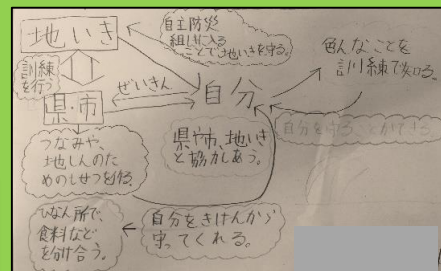 地いき
自主防災
組しきに入る
ことで地いきを守る。
色んなことを
訓練で知る。
訓練
を行う
ぜいきん
自分
県・市
つなみや、
地しんのた
めのしせつを作る。
県や市、地いき
と協力しあう。
自分を守ることができる
ひなん所で、
食料など
を分け合う。
自分をきけんから
守ってくれる。